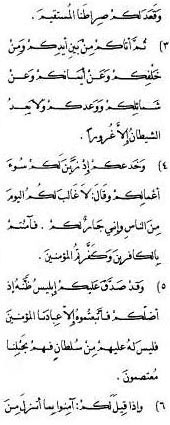 وقعد لكم صراطنا المستقيم .
٣) ثم أتاكم من بين أيديكم ومن
خلفكم وعن أيمانكم وعن
شمائلكم ووعدكم ولا يعد
الشيطان إلا غرورا .
٤) وخدعكم إذ زين لكم سوء
أعمالكم وقال : لا غالب لكم اليوم
من الناس وإني جار لكم . فآمنتم
بالكافرين وكفرتم بالمؤمنين .
٥) وقد صدق عليكم إبليس ظنه إذ
أضلكم فاتبعتموه إلا عبادنا المؤمنين
فليس له عليهم من سلطان فهم بحبلنا
معتصمون .
٦) وإذا قيل لكم : آمنوا بما أنزل من